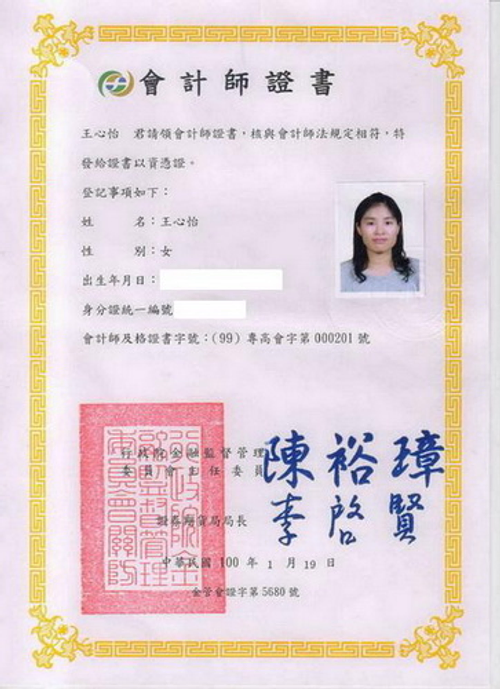 會計師證書
王心怡 君請領會計師證書,核與會計師法規定相符,特
發給證書以資憑證。
登記事項如下:
姓 名:王心怡
性 別:女
出生年月日:
身分證統一編號
會計師及格證書字號:(99)專高會字第000201號
行政院金融監督管理
委員會主任委員
陳裕璋
證券期貨局局長
李啓賢
中華民國100年1月19日
金管會證字第5680號
行政院金
融監督管理
委員會關防